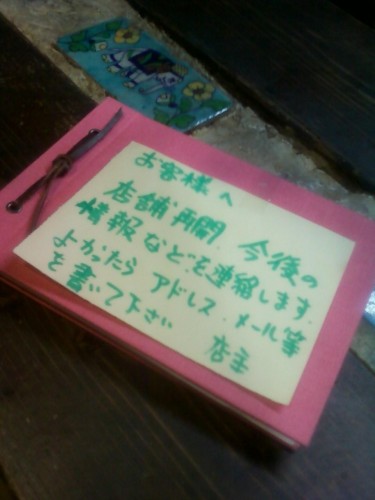 お客様へ
店舗再開 今後の
情報などを連絡します。
よかったら アドレス・メール等
を書いて下さい
店主